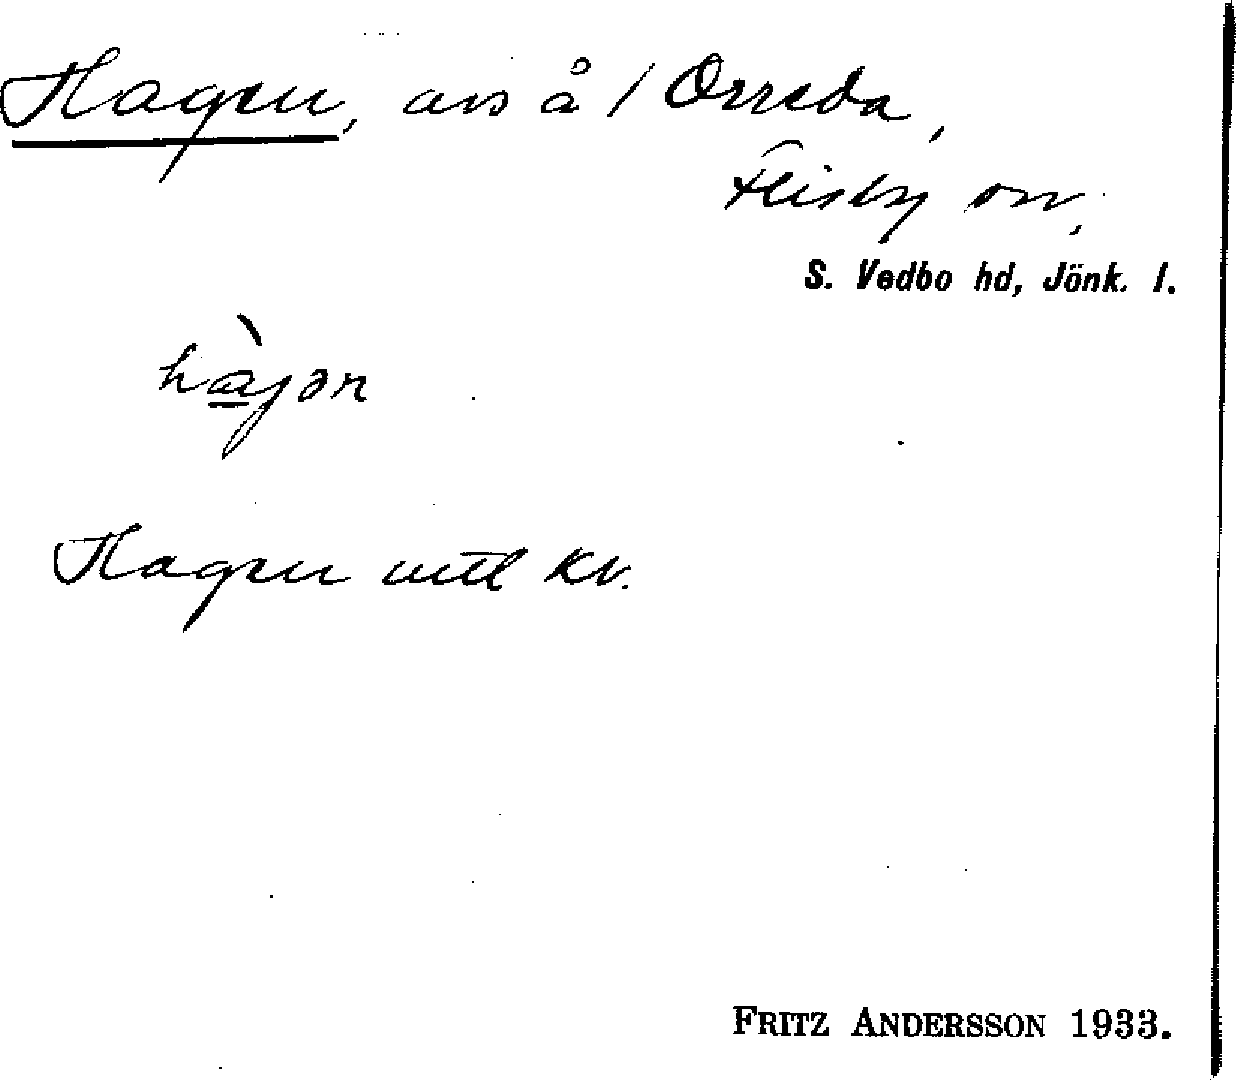 Hagen, avs å 1 Orreda,
Flisby sn,
S. Vedbo hd, Jönk. l.
hàgən
Hagen uttl kv.
FRITZ ANDERSSON 1933.